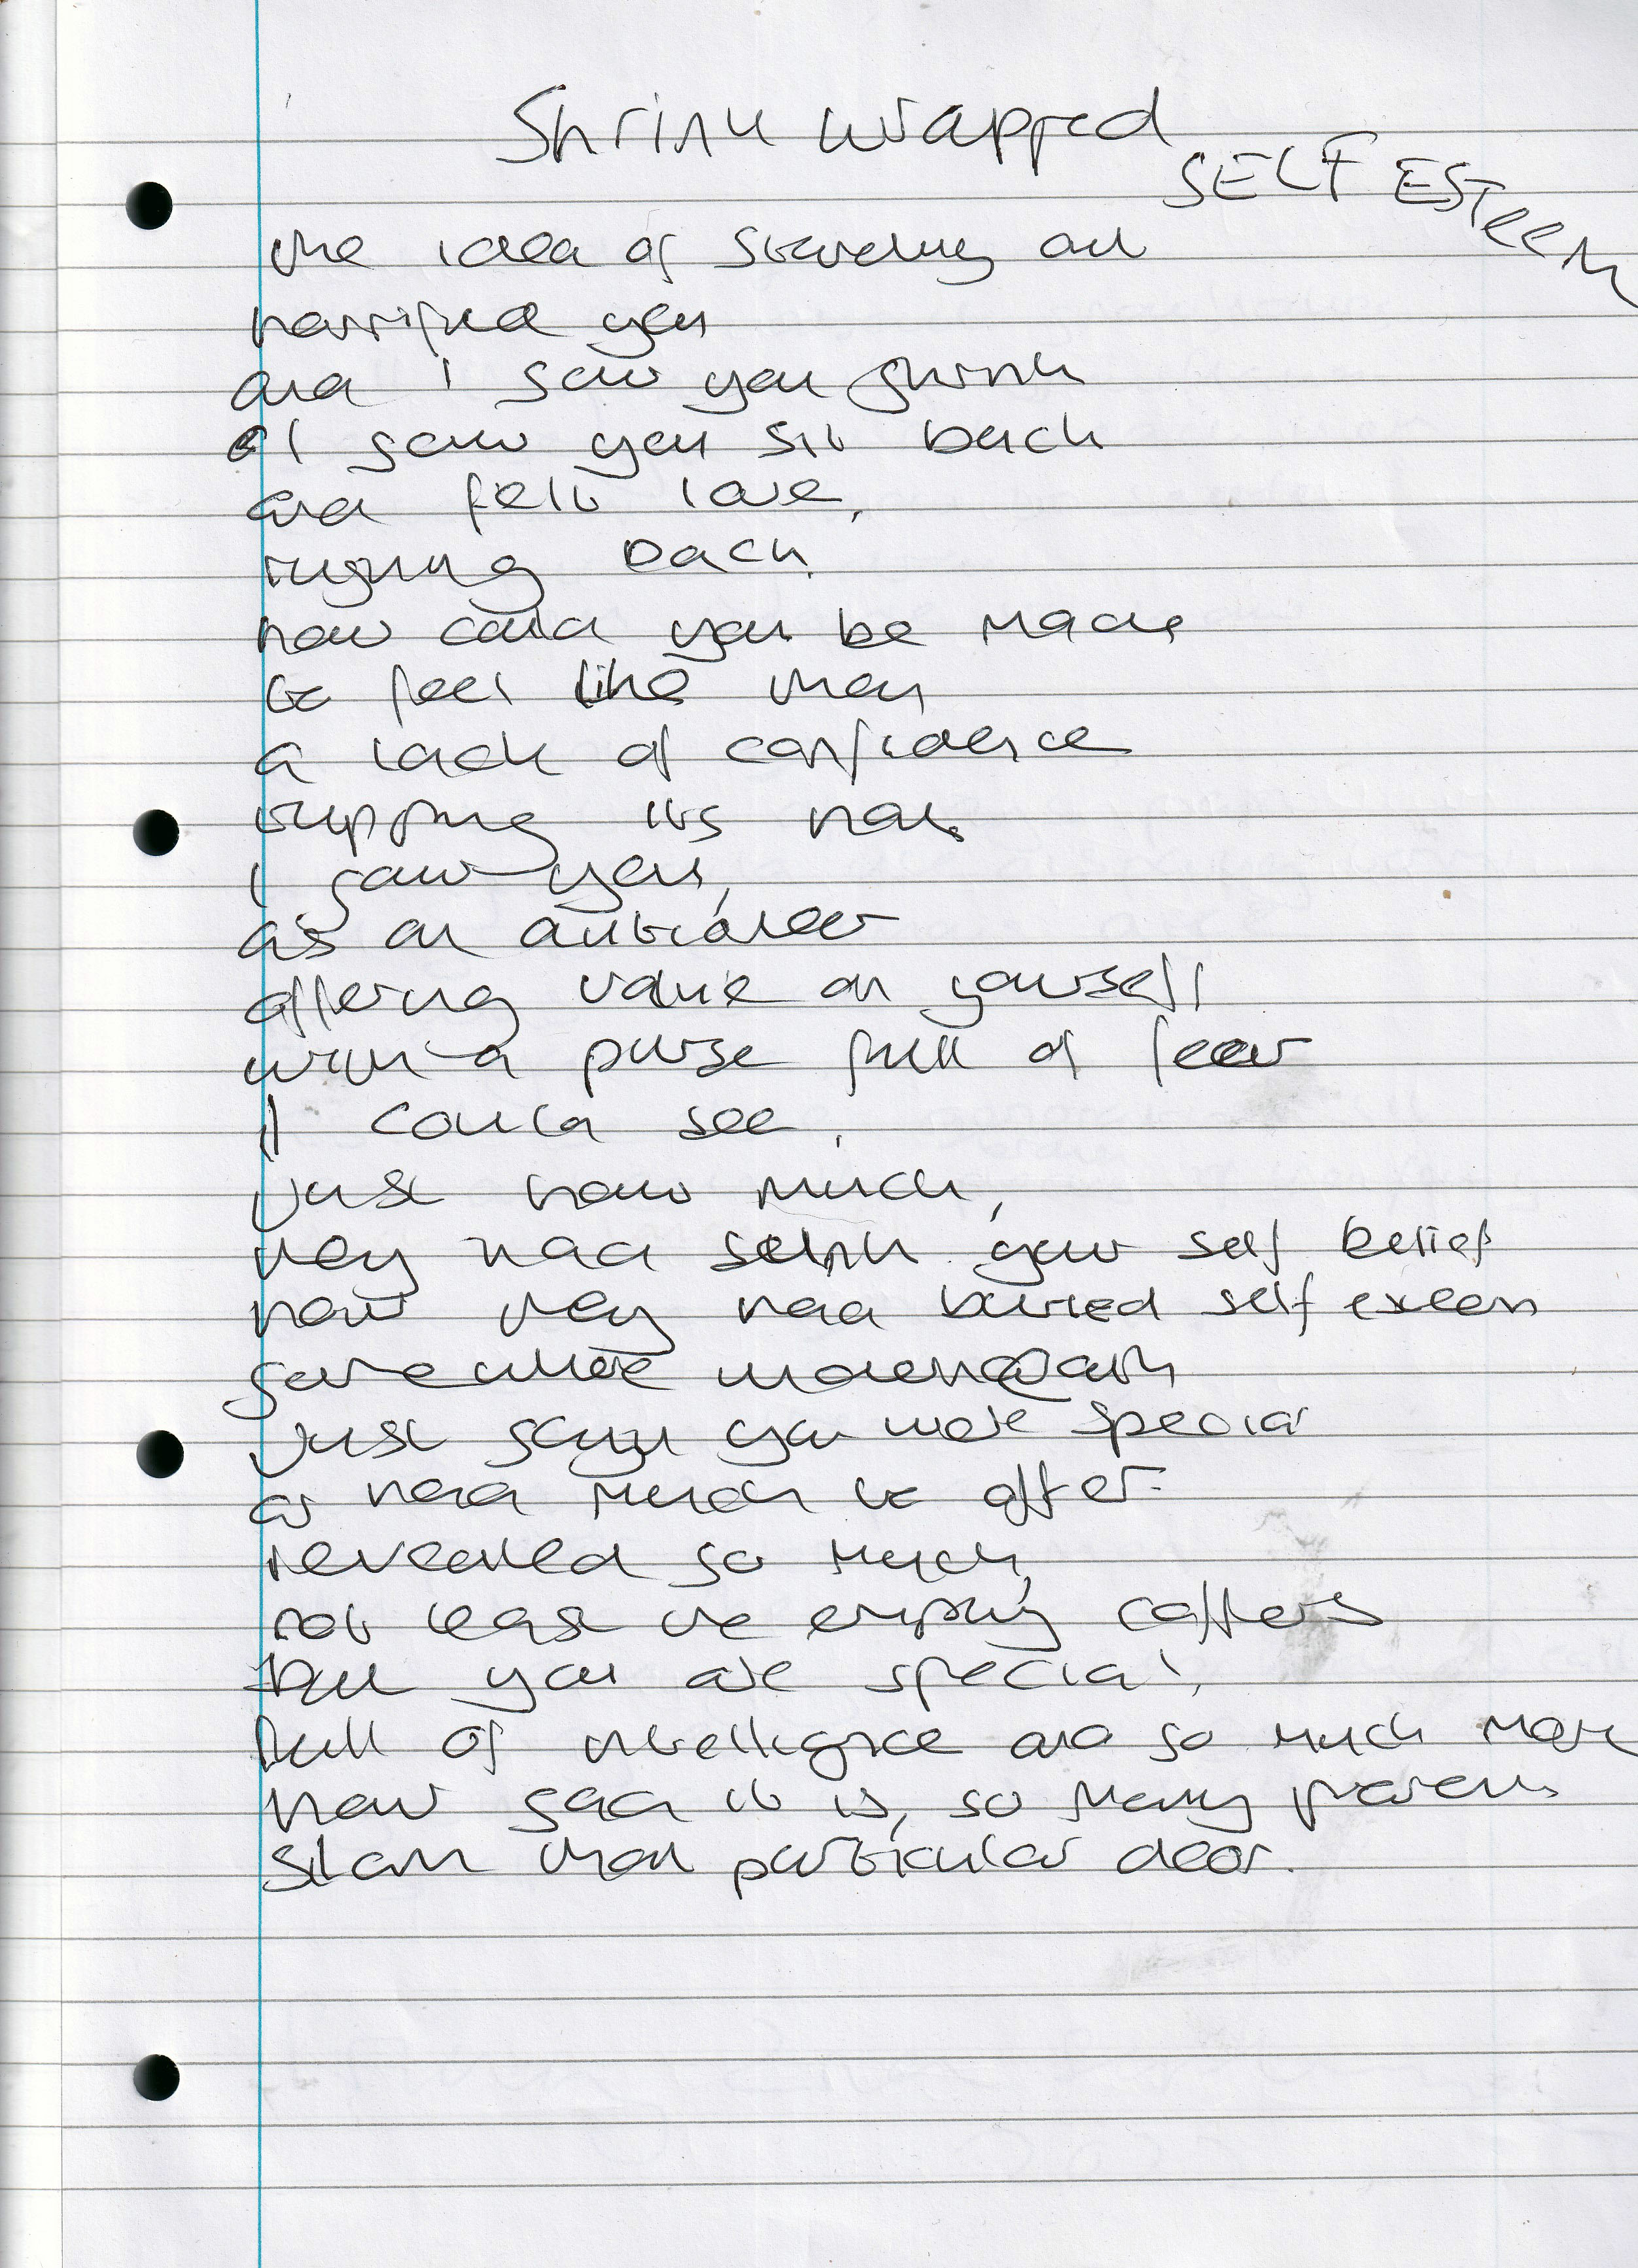 Shrink wrapped
SELF ESTEEM
the idea of standing out
horrified you
and i saw you shrink
I saw you sit back
and felt love,
back
how could you be made
to feel like that
a lack of confidence
its hat
I saw you,
as an auctioneer
offering value on yourself
with a purse full of fear
I could see,
just how much,
they had your self belief
how they had buried self esteem
somewhere
just you were special
or had much to offer.
revealed so much,
not least the empty coffers
but you are special,
full of intelligence and so much more
how sad it is, so many parents
slam that particular door.